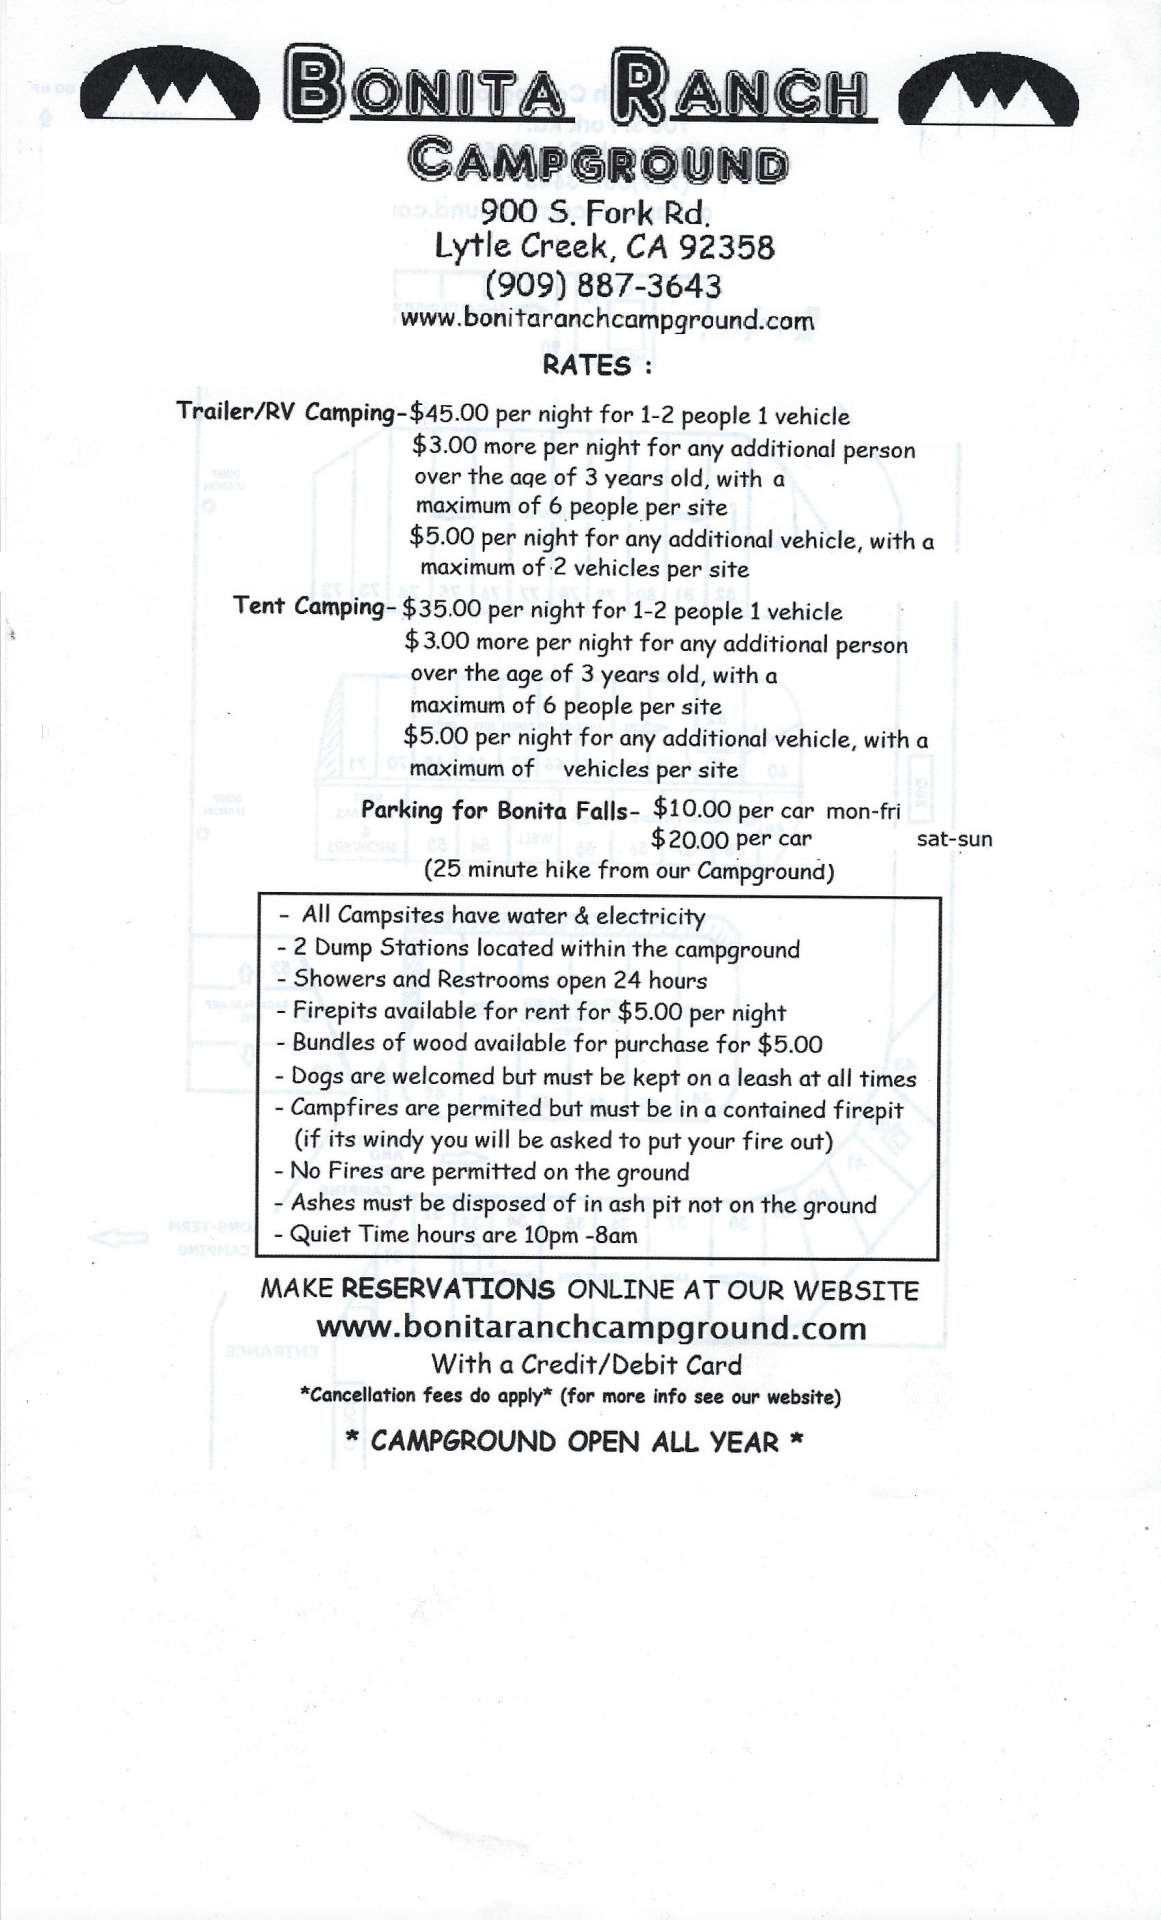 BONITA RANCH
CAMPGROUND
900 S. Fork Rd.
Lytle Creek, CA 92358
(909) 887-3643
www.bonitaranchcampground.com
RATES :
Trailer/RV Camping-$45.00 per night for 1-2 people 1 vehicle
$3.00 more per night for any additional person
over the age of 3 years old, with a
maximum of 6 people per site
$5.00 per night for any additional vehicle, with a
maximum of 2 vehicles per site
Tent Camping-$35.00 per night for 1-2 people 1 vehicle
$3.00 more per night for any additional person
over the age of 3 years old, with a
maximum of 6 people per site
$5.00 per night for any additional vehicle, with a
maximum of vehicles per site
Parking for Bonita Falls- $10.00 per car mon-fri
$20.00 per car sat-sun
(25 minute hike from our Campground)
- All Campsites have water & electricity
- 2 Dump Stations located within the campground
- Showers and Restrooms open 24 hours
- Firepits available for rent for $5.00 per night
- Bundles of wood available for purchase for $5.00
- Dogs are welcomed but must be kept on a leash at all times
- Campfires are permited but must be in a contained firepit
(if its windy you will be asked to put your fire out)
- No Fires are permitted on the ground
- Ashes must be disposed of in ash pit not on the ground
- Quiet Time hours are 10pm -8am
MAKE RESERVATIONS ONLINE AT OUR WEBSITE
www.bonitaranchcampground.com
With a Credit/Debit Card
*Cancellation fees do apply* (for more info see our website)
* CAMPGROUND OPEN ALL YEAR *